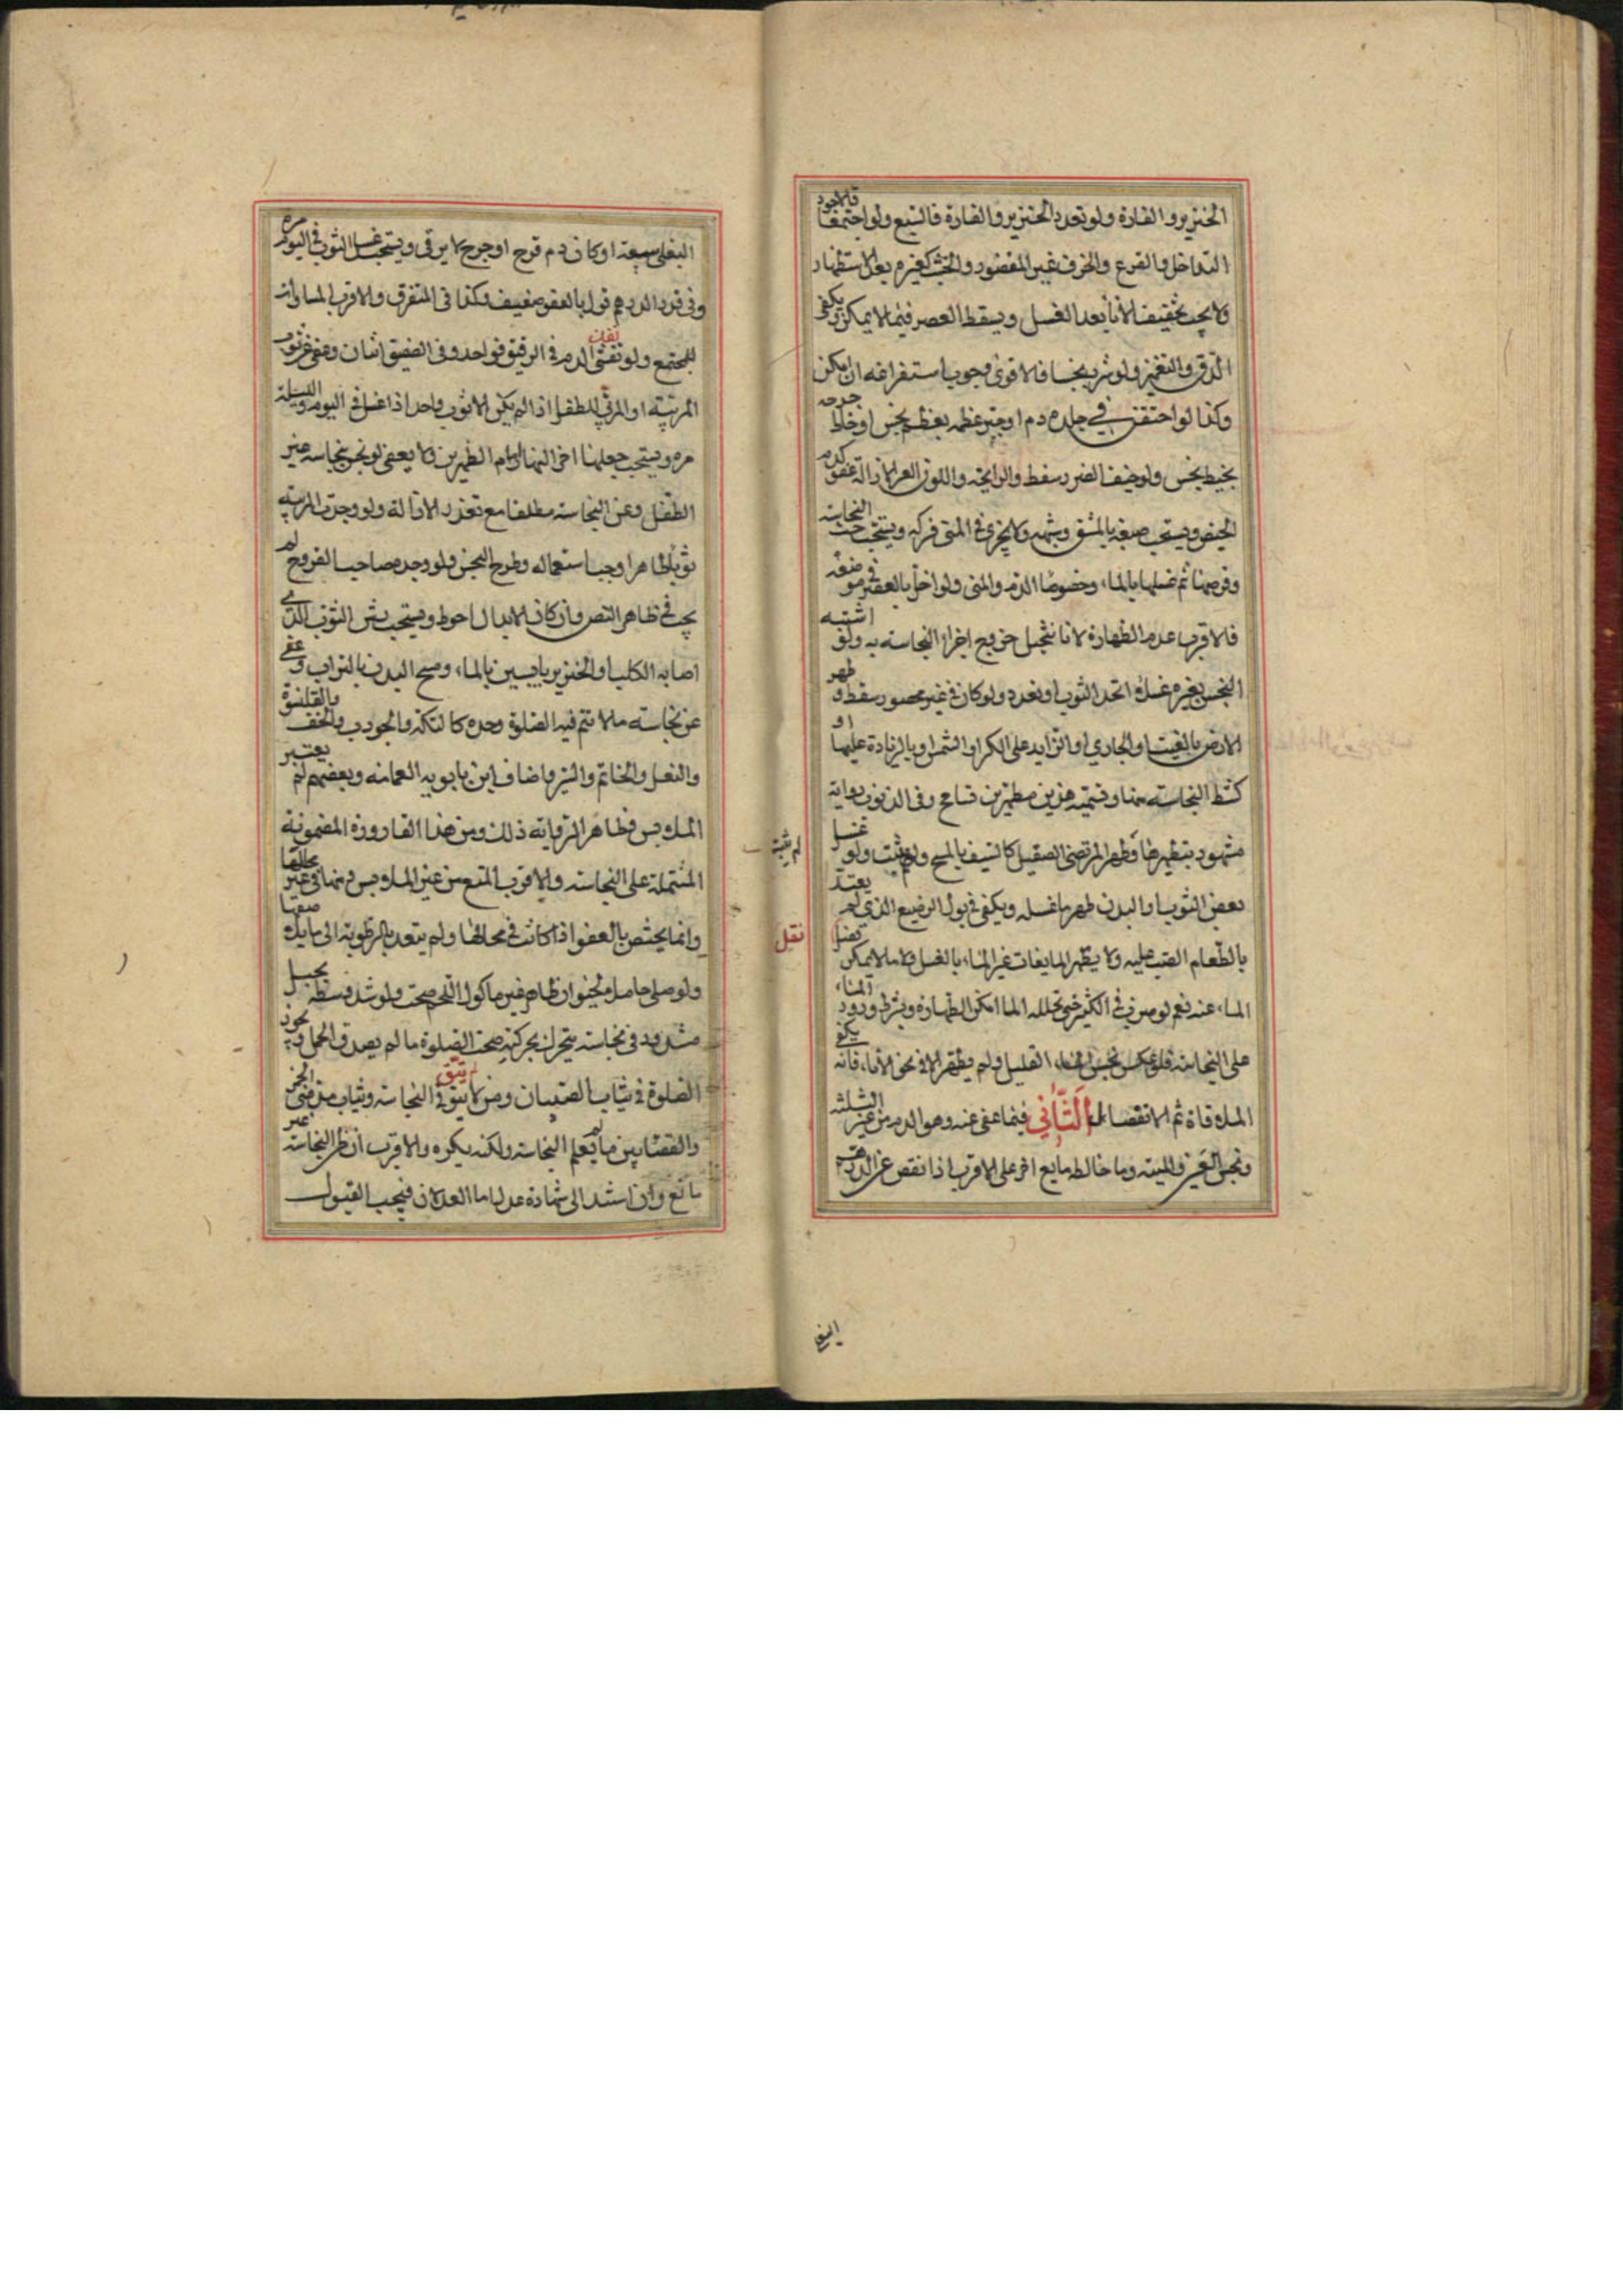 الخنزير والفارة ولو تعدد الخنزير والفارة فالسبع ولو اجتمعا فالاجود
التداخل والقرع والخزف غير المغضور والخشب كغيره بعد الاستظهار
ولا يجب تجفيف الاناء بعد الغسل ويسقط العصر فيما لا يمكن ويكفى
الدق والتغميز ولو شرب نجسا فالاقوى وجوب استفراغه ان امكن
وكذا لو احتقن في جلده دم او جبر عظمه بعظم نجس او خاط جرحه
بخيط نجس ولو خيف الضرر سقط والرايحة واللون العسر الازالة عفو كدم
الحيض ويستحب صبغه بالمشق وشبهه ولا يجزى في المنى فركه ويستحب حت النجاسة
وقرصها ثم غسلها بالماء وخصوصا الدم والمنى ولو اخل بالعصر في موضعه
فالاقرب عدم الطهارة لانا نتخيل خروج اجزاء النجاسة به ولو اشتبه
النجس بغيره غسل اتحد الثوب او تعدد ولو كان في غير محصور سقط و طهر
الارض بالغيث والجاري او الزايد على الكر او الشمس او بالزيادة عليها او
كشط النجاسة عنها وتسمية هذين مطهرين تسامح وفي الذنوب رواية
مشهورة بتطهيرها وطهر المرتضى الصقيل كالسيف بالمسح ولم يثبت ولو غسل
لم يثبت
بعض الثوب او البدن طهر ما غسله ويكفي في بول الرضيع الذي لم يعتد
بالطعام الصب عليه ولا يطهر المايعات غير الماء بالغسل ولا ما لا يمكن فصل
نقل
الماء عنه نعم لو صب في الكثير حتى تخلله الماء امكن الطهارة ويشترط ورود الماء
على النجاسة فلو عكس نجس الماء القليل ولم يطهر الا في نحو الاناء فانه يكفى
الملاقاة ثم الانفصال الثاني فيما عفى عنه وهو الدم من غير الثلثة
ونجس العين والميتة وما خالطه مايع اخر على الاقرب اذا نقص عن الدرهم
البغلى
البغلى سعة او كان دم قرح او جرح لا يرقى ويستحب غسل الثوب في اليوم مرة
وفي قدر الدرهم قول بالعفو ضعيف وكذا في المتفرق والاقرب المساواة
للمجتمع ولو تفشى الدم في الرقيق فواحد وفي الصفيق اثنان وعفى عن ثوب
المربية او المربي للطفل اذا لم يكن الا ثوب واحد اذا غسل في اليوم والليلة
مرة ويستحب جعلها اخر النهار امام الظهرين ولا يعفى لو نجس بنجاسة غير
الطفل وعن النجاسة مطلقا مع تعذر الازالة ولو وجدت المربية
ثوبا طاهرا وجب استعماله وطرح النجس ولو وجده صاحب القروح لم
يجب في ظاهر النص وان كان الابدال احوط ويستحب رش الثوب الذي
اصابه الكلب او الخنزير يابسين بالماء ومسح البدن بالتراب وعفى
عن نجاسة ما لا تتم فيه الصلوة وحده كالتكة والجورب والخف والقلنسوة
والنعل والخاتم والسير واضاف ابن بابويه العمامة وبعضهم لم يعتبر
الملبوس وظاهر الرواية ذلك ومن هذا القارورة المضمومة
المشتملة على النجاسة والاقرب المنع من غير الملبوس ومنها في غير محالها
وانما يختص بالعفو اذا كانت في محالها ولم يتعد بالرطوبة الى ما يلاصقها
ولو صلى حاملا لحيوان طاهر غير ماكول اللحم صحت ولو شد وسطه بحبل
مشدود في نجاسة يتحرك بحركته صحت الصلوة ما لم يصدق الحمل ويجوز
الصلوة في ثياب الصبيان ومن لا يتوقى النجاسة وثياب مدمنى الخمر
والقصابين ما لم يعلم النجاسة ولكنه يكره والاقرب ان ظن النجاسة غير
مانع وان استند الى شهادة عدل اما العدلان فيجب القبول